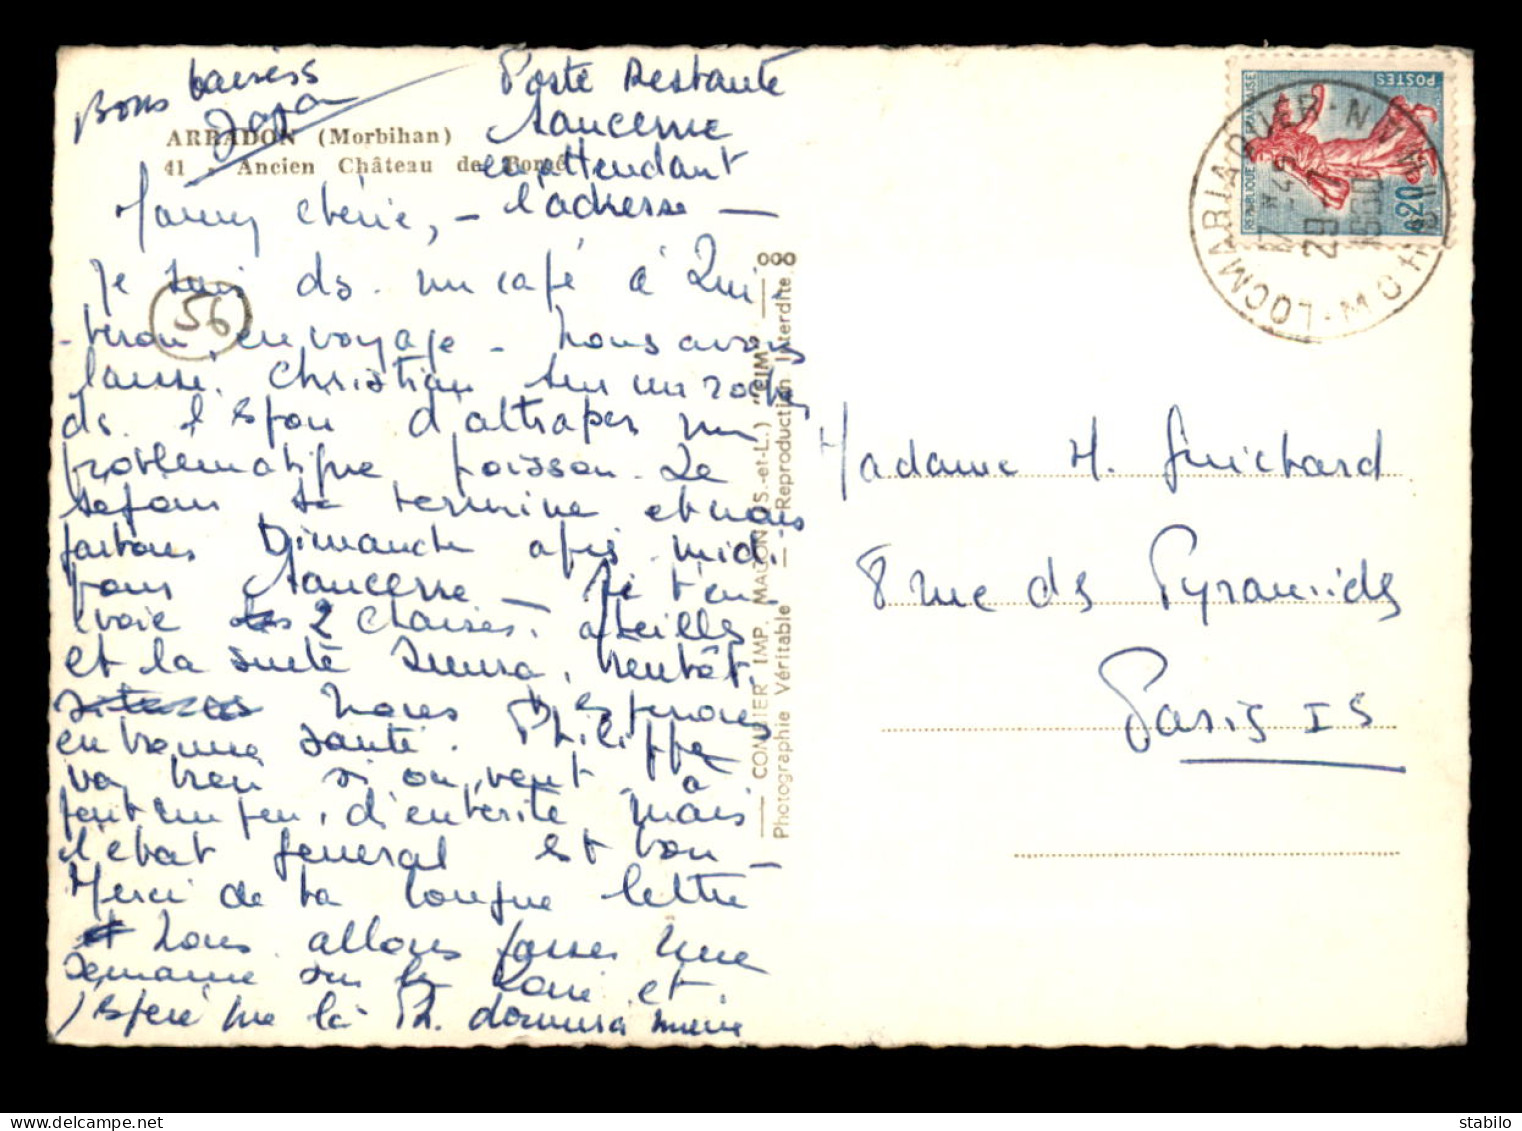 Bons baisers
Papa
Poste Restante
Sancerre
en attendant
l'adresse —
ARRADON (Morbihan)
41 - Ancien Château de
Mamy chérie, —
Je suis ds. un café à Qui
-beron, en voyage - nous avons
laissé Christian sur un rocher
ds. l'espoir d'attraper un
problématique poisson. Le
séjour se termine et nous
partons Dimanche après-midi.
pour Sancerre — Je t'en
voie 2 chaises, 
et la suite suivra, bientôt.
nous t'espérons
en bonne santé. Philippe
va bien si on veut, a
fait un peu d'entérite mais
l'état général est bon —
Merci de ta longue lettre
Nous allons passer une
semaine sur la Loire et
j'espère que là Ph. dormira mieux
56
COMBIER IMP. MACON (S.-et-L.) "CIM"
Photographie Véritable — Reproduction Interdite
REPUBLIQUE FRANÇAISE
POSTES
0,20
LOCMARIAQUER
MORBIHAN
17 H 45
29
Madame H. Guichard
8 rue des Pyramides
Paris IS
www.delcampe.net
stabilo